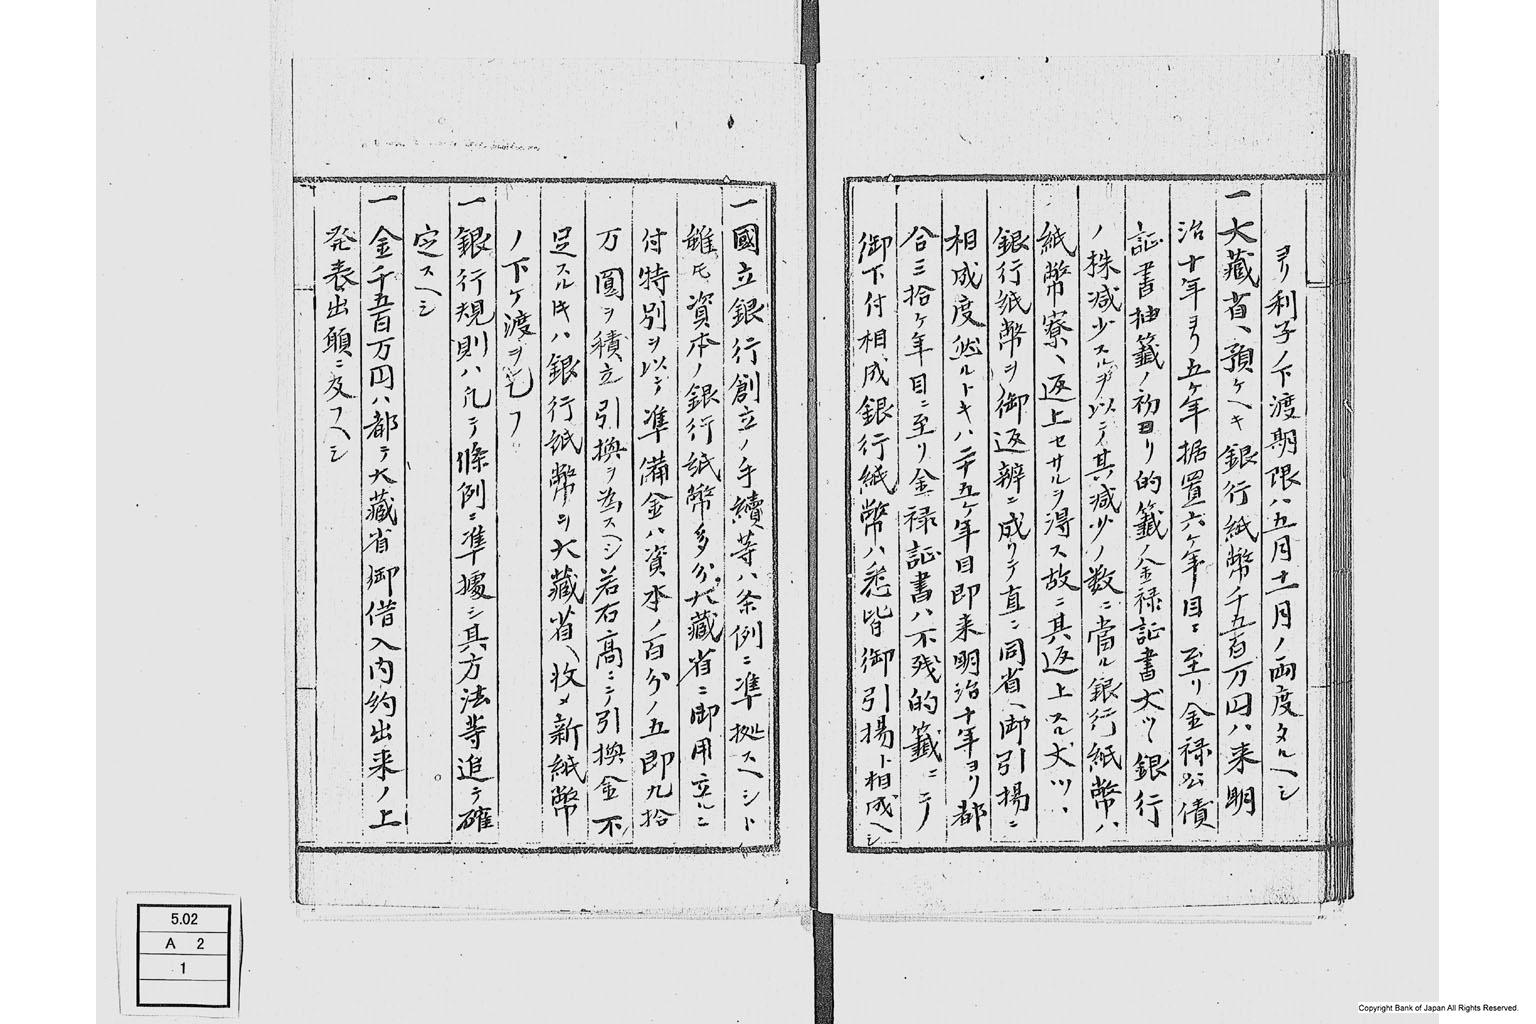 ヨリ利子ノ下渡期限ハ五月十一月ノ両度タルヘシ
一大藏省ヘ預ケヘキ銀行紙幣千五百万円ハ来明
治十年ヨリ五ケ年据置六ケ年目ニ至リ金禄公債
証書抽籤ノ初回ヨリ的籤ノ金禄証書丈ツヽ銀行
ノ株減少スルヲ以テ其減少ノ数ニ當ル銀行紙幣ハ
紙幣寮ヘ返上セサルヲ得ス故ニ其返上スル丈ツヽ
銀行紙幣ヲ御返辨ニ成リテ直ニ同省ヘ御引揚ニ
相成度然ルトキハ二十五ケ年目即来明治十年ヨリ都
合三拾ケ年目ニ至リ金禄証書ハ不残的籤ニテ
御下付相成銀行紙幣ハ悉皆御引揚ト相成ヘシ
一國立銀行創立ノ手續等ハ条例ニ準拠スヘシト
雖モ資本ノ銀行紙幣多分大藏省ニ御用立ルニ
付特別ヲ以テ準備金ハ資本ノ百分ノ五即九拾
万圓ヲ積立引換ヲ為スヘシ若右高ニテ引換金不
足スル時ハ銀行紙幣ヲ大藏省ヘ收メ新紙幣
ノ下ケ渡ヲ乞フ
一銀行規則ハ凡テ條例ニ準據シ其方法等追テ確
定スヘシ
一金千五百万円ハ都テ大藏省御借入内約出来ノ上
発表出願ニ及フヘシ
5.02
A 2
1
Copyright Bank of Japan All Rights Reserved.